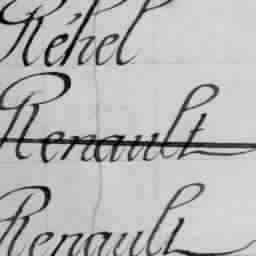 Réhel
Renault
Renault